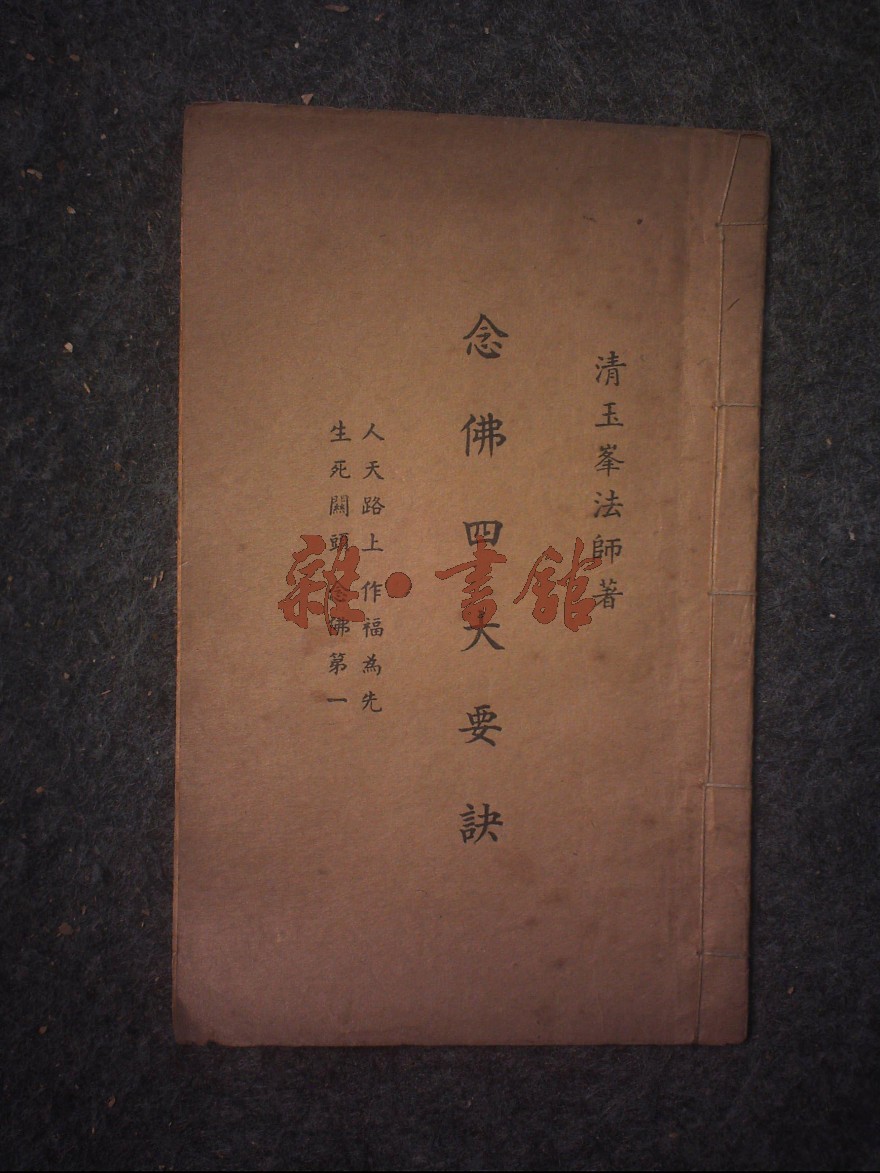 清玉峯法師著
念佛四大要訣
人天路上 作福為先
生死關頭 念佛第一
雜·書館